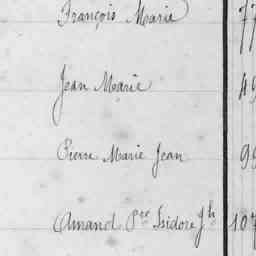 François Marie 77
Jean Marie 49
Pierre Marie Jean 99
Amand Pre Isidore Jh 107